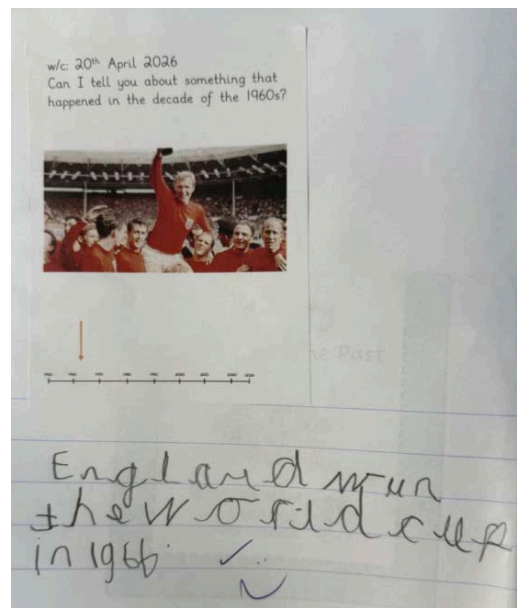 w/c: 20th April 2026
Can I tell you about something that
happened in the decade of the 1960s?
he Past
England wun
the world cup
in 1966.